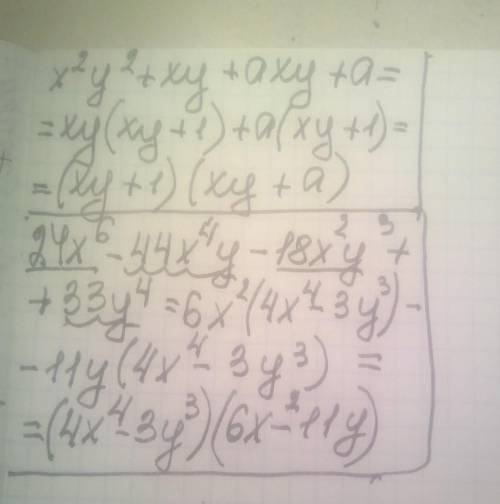 x²y²+xy+axy+a=
=xy(xy+1)+a(xy+1)=
=(xy+1)(xy+a)
24x⁶-44x⁴y-18x²y³+
+33y⁴=6x²(4x⁴-3y³)-
-11y(4x⁴-3y³)=
=(4x⁴-3y³)(6x²-11y)